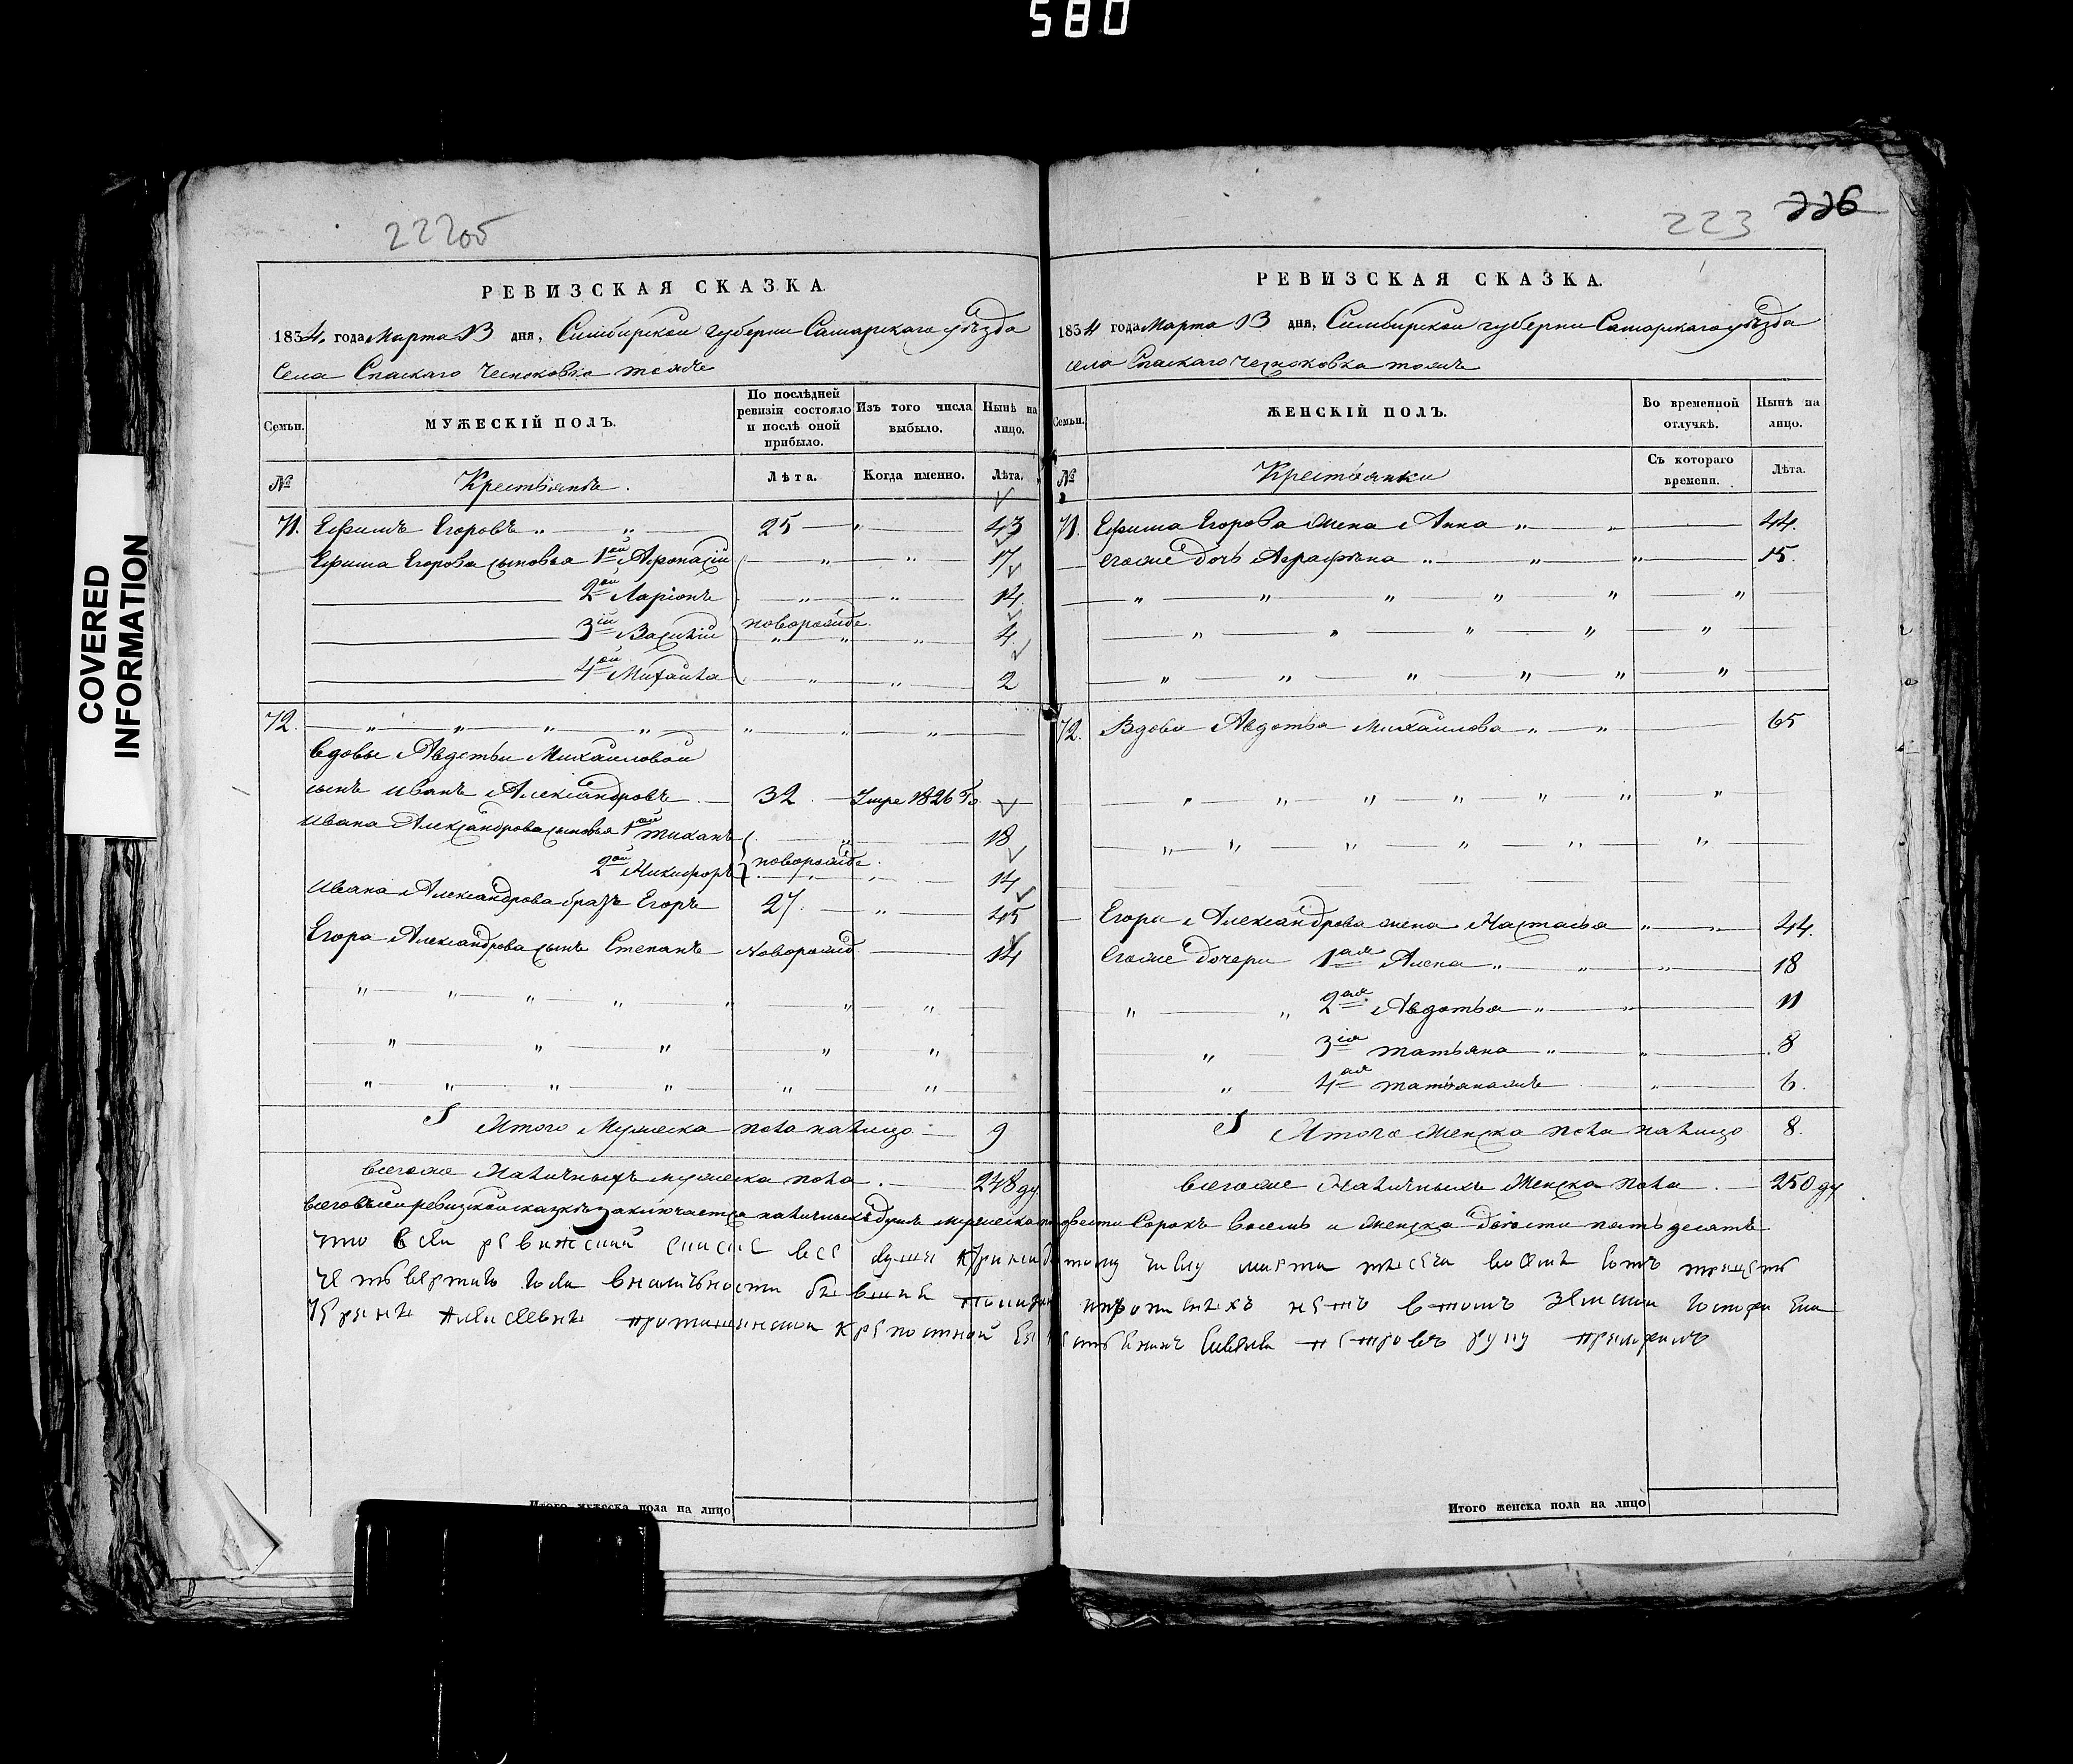 580
COVERED
INFORMATION
222об
РЕВИЗСКАЯ СКАЗКА.
1834. года Марта 13 дня, Симбирской губерни Самарскаго уѣзда
Села Спаскаго Чесноковка тожъ
Семьи.
МУЖЕСКІЙ ПОЛЪ.
По послѣдней ревизіи состояло и послѣ оной прибыло.
Изъ того числа выбыло.
Нынѣ на лицо.
№ Крестьяне. Лѣта. Когда именно. Лѣта.
71. Ефимъ Егоровъ 25 43
Ефима Егорова сыновья 1ой Афонасій 17
2ой Ларіонъ 14
3ій Василій новорожде. 4
4ой Михаила 2
72.
вдовы Авдотьи Михайловой
сынъ Иванъ Александровъ 32 Умре 1826 Го
Ивана Александрова сыновья 1ой 18
2ой Никифоръ новорожде. 14
Ивана Александрова братъ Егоръ 27 45
Егора Александрова сынъ Степанъ Новорожд 14
Итого Мужеска пола налицо 9
Всегоже Наличныхъ мужеска пола 248 ду
223 226
РЕВИЗСКАЯ СКАЗКА.
1834 года Марта 13 дня, Симбирской губерни Самарскаго уѣзда
села Спаскаго Чесноковка тожъ
Семьи.
ЖЕНСКІЙ ПОЛЪ.
Во временной отлучкѣ.
Нынѣ на лицо.
№ Крестьянки Съ котораго времени. Лѣта.
71. Ефима Егорова жена Анна 44.
егоже дочь Аграфѣна 15.
72. Вдова Авдотья Михаилова 65
Егора Александрова жена Настасья 44.
Егоже дочери 1ая Алена 18
2ая Авдотья 11
3ія татьяна 8
4ая татьянажъ 6.
Итого Женска пола налицо 8.
Всегоже Наличныхъ Женска пола 250 ду
Всего въ сей ревизской сказкѣ заключается наличныхъ душъ мужеска двести Сорокъ Восемь и женска двести пятьдесятъ
что в сей все души
марта восемъ сотъ
петровъ руку
Итого мужеска пола на лицо
Итого женска пола на лицо